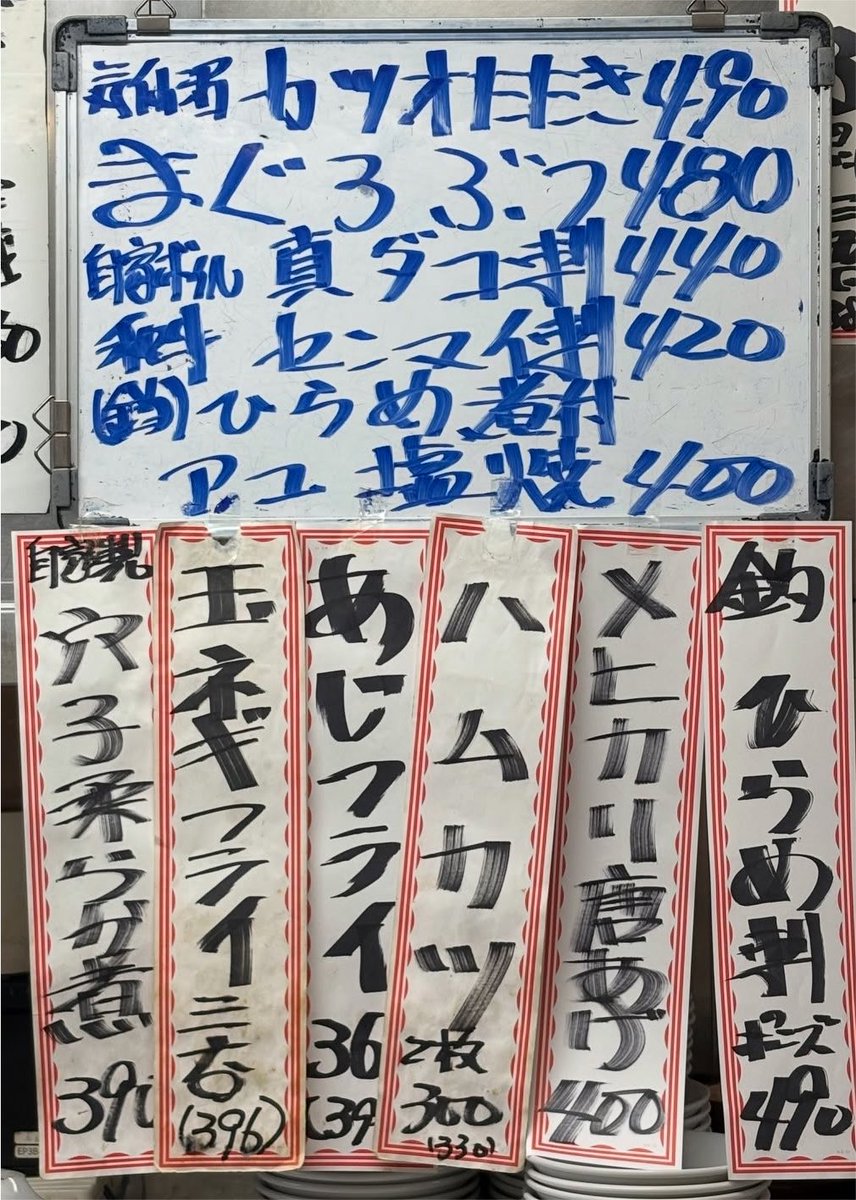 気仙沼 カツオたたき 490
まぐろぶつ 480
自家ボイル 真ダコ刺 440
和牛 センマイ刺 420
(釣)ひらめ煮付
アユ塩焼 400
釣 ひらめ刺 ポンズ 490
メヒカリ唐あげ 400
ハムカツ 2枚 300 (330)
あじフライ 36 (39
玉ネギフライ 三六〇 (396)
自家製 穴子柔らか煮 390